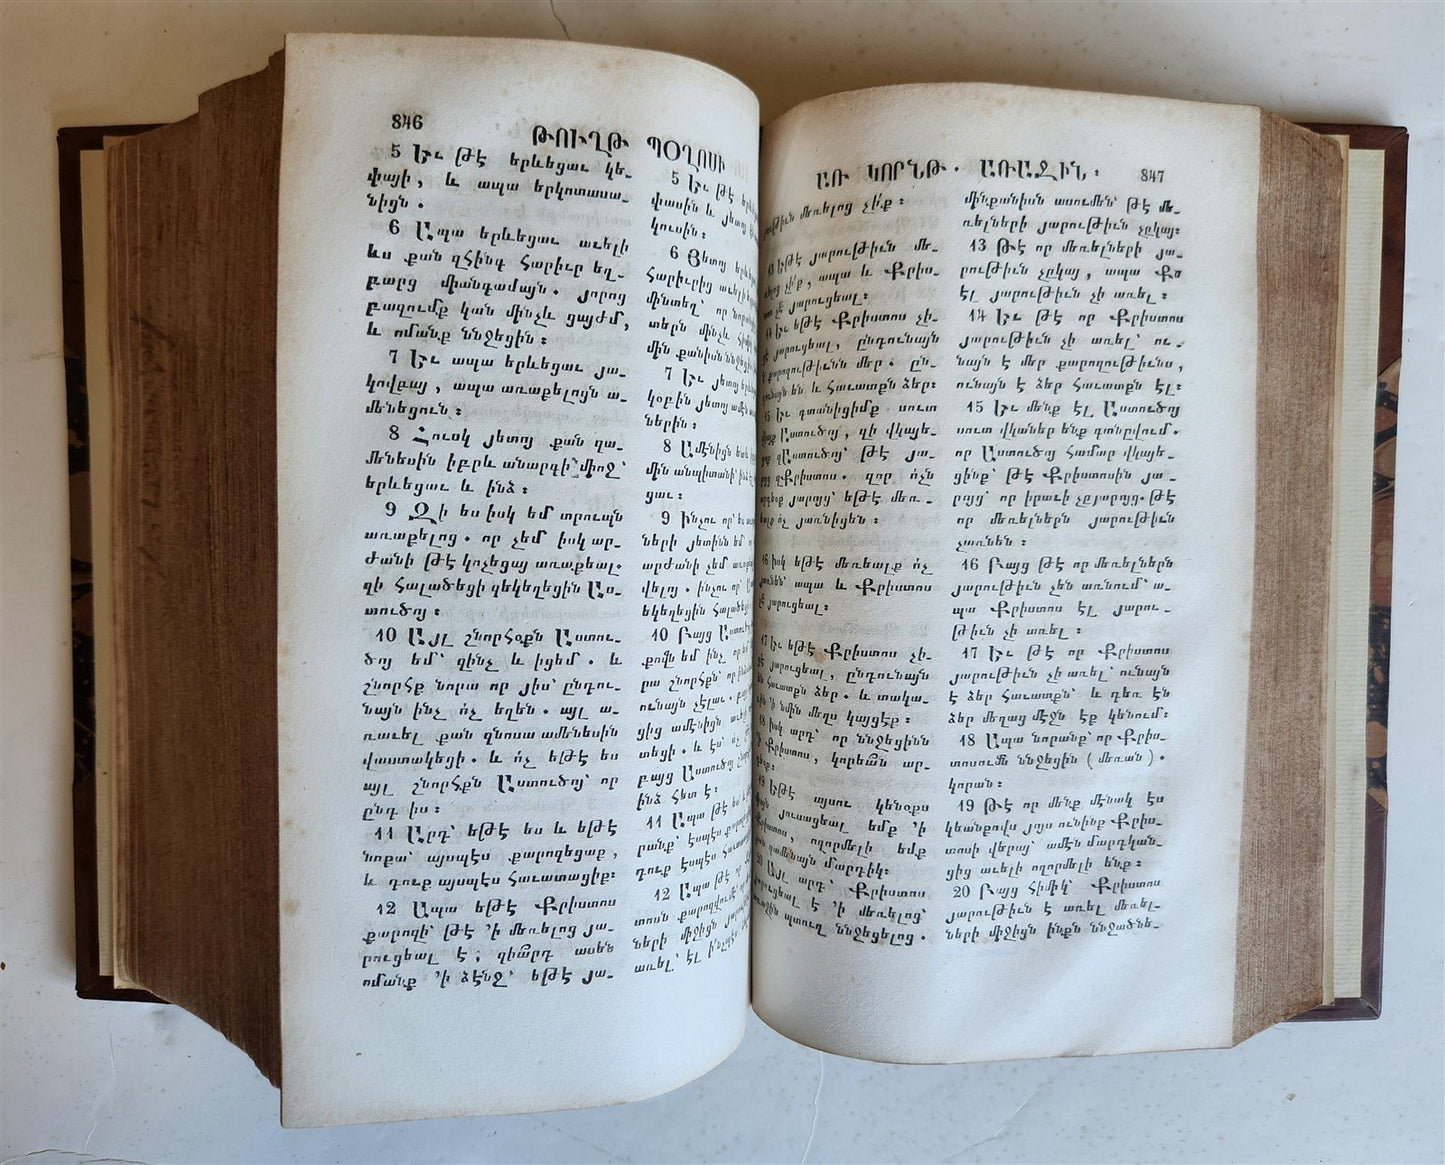 846
ԹՈՒՂԹ ՊՕՂՈՍԻ
5 Եւ թէ երևեցաւ կե֊
փայի, և ապա երկոտասա֊
նիցն.
6 Ապա երևեցաւ աւելի
ևս քան զհինգ հարիւր եղ֊
բարց միանգամայն. յորոց
բազումք կան մինչև ցայժմ,
և ոմանք ննջեցին:
7 Եւ ապա երևեցաւ յա֊
կովբայ, ապա առաքելոյն ա֊
մենեցուն:
8 Հուսկ յետոյ քան զա֊
մենեսին իբրև անարգի՛ միոջ՝
երևեցաւ և ինձ:
9 Զի ես իսկ եմ տրուպն
առաքելոց. որ չեմ իսկ ար֊
ժանի թէ կոչեցայ առաքեալ.
զի հալածեցի զեկեղեցին Աս֊
տուծոյ:
10 Այլ շնորհօքն Աստու֊
ծոյ եմ՝ զինչ և իցեմ. և
շնորհք նորա որ յիս՝ ընդու֊
նայն ինչ ոչ եղեն. այլ ա֊
ռաւել քան զնոսա ամենեսին
վաստակեցի. և ոչ եթէ ես
այլ շնորհքն Աստուծոյ՝ որ
ընդ իս:
11 Արդ՝ եթէ ես և եթէ
նոքա՝ այսպէս քարոզեցաք,
և դուք այսպէս հաւատացիք:
12 Ապա եթէ Քրիստոս
քարոզի՝ թէ ՚ի մեռելոց յա֊
րուցեալ է, զիա՞րդ ասեն
ոմանք ՚ի ձէնջ՝ եթէ յա֊
5 Եւ թէ
փասին և յետոյ
կուսին:
6 Յետոյ
հարիւրից աւելի
մինտեղ՝ որ
տերն մինչև
մին քանիսն
7 Եւ յետոյ
կօբին յետոյ ամէն
ներին:
8 Ամէնիցն
մին անպիտանի՝
ցաւ:
9 Ինչու որ՝ ես
ների յետինն եմ
արժանի չեմ
վելոյ. ինչու որ՝
եկեղեցին
10 Բայց
քովն եմ ինչ որ
րա շնորհքն՝ որ
ունայն չէլաւ.
ցից ամէնիցն
տեցի. և ես՝ ոչ
բայց Աստուծոյ
ինձ հետ է:
11 Ապա թէ ես
րանք՝ էսպէս
դուք էսպէս
12 Ապա թէ որ՝
տոսն
ների միջիցն
առել՝ էլ
ԱՌ ԿՈՐՆԹ. ԱՌԱՋԻՆ:
847
մեռելոց չի՛ք:
13 Եթէ յարութիւն մե֊
չի՛ք, ապա և Քրիս֊
չէ յարուցեալ:
14 Եւ եթէ Քրիստոս չի֊
յարուցեալ, ընդունայն
քարոզութիւնն մեր. ըն֊
են և հաւատքն ձեր:
15 Եւ գտանիցիմք սուտ
Աստուծոյ, զի վկայե֊
զԱստուծոյ՝ թէ յա֊
զՔրիստոս. զոր ոչն
յարոյց՝ եթէ մեռ֊
ոչ յառնիցեն:
16 Իսկ եթէ մեռեալք ոչ
յառնեն՝ ապա և Քրիստոս
չէ յարուցեալ:
17 Եւ եթէ Քրիստոս չի֊
յարուցեալ, ընդունայն
հաւատքն ձեր. և տակա֊
՚ի նմին մեղս կայցէք:
18 Իսկ արդ՝ որ ննջեցինն
՚ի Քրիստոս, կորեա՞ն ար֊
19 Եթէ այսու կենօքս
յուսացեալ եմք ՚ի
ողորմելի եմք
զամենայն մարդիկ:
20 Այլ արդ՝ Քրիստոս
է ՚ի մեռելոց՝
պտուղ ննջեցելոց.
մինքանիսն ասումեն՝ թէ մե֊
ռելների յարութիւն չըկայ:
13 Թէ որ մեռելների յա֊
րութիւն չըկայ, ապա Քս
էլ յարութիւն չի առել:
14 Եւ թէ որ Քրիստոս
յարութիւն չի առել՝ ու֊
նայն է մեր քարոզութիւնս,
ունայն է ձեր հաւատքն էլ:
15 Եւ մենք էլ Աստուծոյ
սուտ վկաներ ենք գոնըվում.
որ Աստուծոյ համար վկայե֊
ցինք՝ թէ Քրիստոսին յա֊
րոյց՝ որ իրաւի չըյարոյց. թէ
որ մեռելներն յարութիւն
չառնեն:
16 Բայց թէ որ մեռելներն
յարութիւն չեն առնում՝ ա֊
պա Քրիստոս էլ յարու֊
թիւն չի առել:
17 Եւ թէ որ Քրիստոս
յարութիւն չի առել՝ ունայն
է ձեր հաւատքն՝ և դեռ էն
ձեր մեղաց մէջն էք կենում:
18 Ապա նորանք՝ որ Քրիս֊
տոսում ննջեցին (մեռան).
կորան:
19 Թէ որ մենք մէնակ էս
կեանքովս յոյս ունինք Քրիս֊
տոսի վերայ՝ ամէն մարդկան֊
ցից աւելի ողորմելի ենք:
20 Բայց հիմիկ՝ Քրիստոս
յարութիւն է առել մեռել֊
ների միջիցն ինքն ննջածնե֊